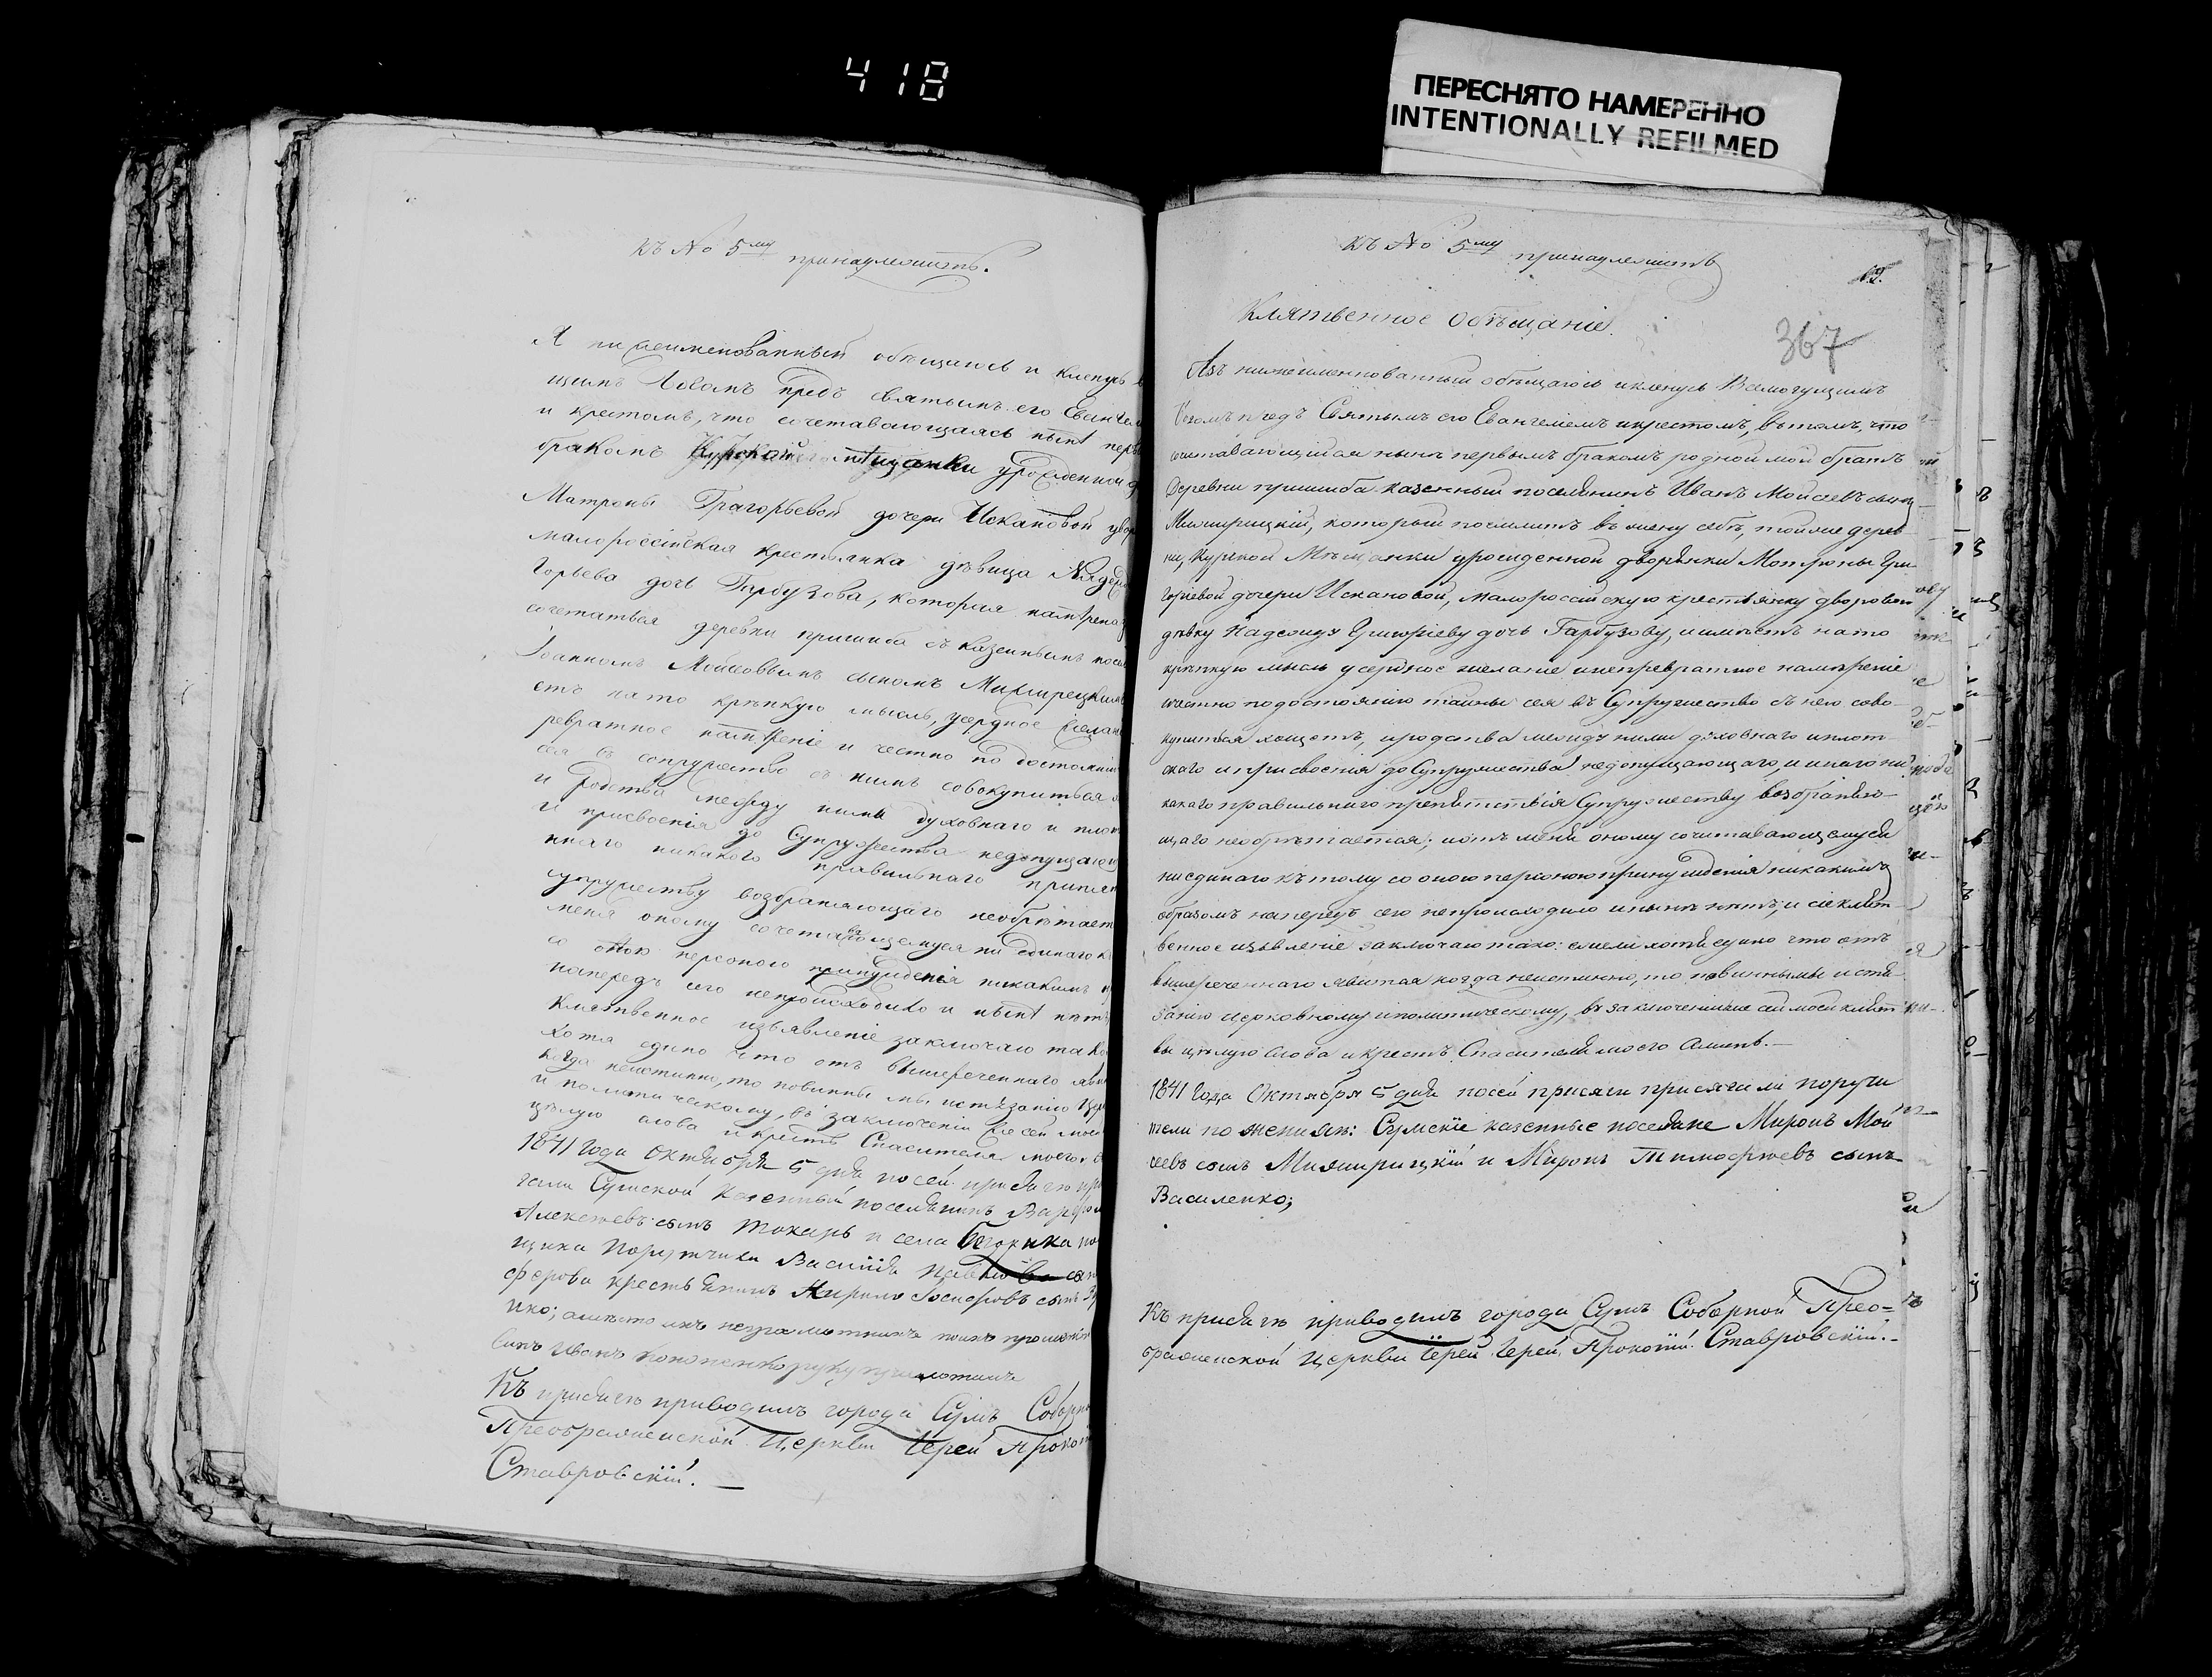 418
ПЕРЕСНЯТО НАМЕРЕННО
INTENTIONALLY REFILMED
Къ № 5му принадлежитъ.
Я нижеименованный обѣщаюсь и кленусь
щимъ Богомъ предъ святымъ его Евангел
и крестомъ, что сочетавающаяся нынѣ перв
бракомъ Курской мѣщанки урожденной д
Матроны Григорьевой дочери Искановой двор
малороссійская крестьянка дѣвица Надежда
горьева дочь Гарбузова, которая намѣрена
сочетаться деревни пришиба съ казеннымъ посел
Іоанномъ Мойсеовымъ сыномъ Миширецкимъ
етъ на то крѣпкую мысль, усердное желан
ревратное намѣреніе и честно по достоянію
сея въ сопружество съ нимъ совокупиться
и родства между ними духовнаго и плот
и присвоенія до Супружества недопущающ
инаго никакого правильнаго препят
супружеству возбраняющаго необрѣтает
меня оному сочетавающемуся ни единаго к
со оною персоною принужденія никакимъ
напередъ сего непроисходило и нынѣ нѣтъ
клятвенное изъявленіе заключаю тако
хотя едино что отъ вышереченнаго яви
когда неистинно, то повинны мы истязанію Цер
и политическому, въ заключеніи же сей моей
цѣлую слова и крестъ Спасителя моего.
1841 года Октября 5 дня по сей присягѣ при
гали Сумской казенный поселянинъ Варфол
Алексѣевъ сынъ Токарь и села по
щика Порутчика Василія Павлова сын
ферова крестьянинъ Кирило Іосифовъ сынъ
нко; а вмѣсто ихъ неграмотныхъ по ихъ прошенію
Иванъ Кононенко руку приложилъ
Къ присягѣ приводилъ города Сумъ Соборно
Преображенской Церкви Іерей Прокоп
Ставровскій. —
Къ № 5му принадлежитъ
19.
367
Клятвенное обѣщаніе.
Азъ нижеименнованный обѣщаюсь и кленусь Всемогущимъ
Богомъ предъ Святымъ его Евангеліемъ и крестомъ, въ томъ, что
сочетавающійся нынѣ первымъ бракомъ родной мой братъ
Деревни пришиба казенный поселянинъ Иванъ Мойсеевъ сынъ
Миширицкій, который поемлитъ въ жену себѣ, той же дерев-
ни, Курской Мѣщанки урожденной дворянки Мотроны Гри-
горіевой дочери Искановой, малороссійскую крестьянку дворовою
дѣвку Надежду Григоріеву дочь Гарбузову, и имѣетъ на то
крѣпкую мысль усердное желаніе и непревратное намѣреніе
честно по достоянію тайны сея въ Супружество съ нею сово-
купиться хощетъ, и родства между ними духовнаго и плот-
скаго и присвоенія до Супружества недопущающаго, и инаго ни-
какаго правильнаго препятствія Супружеству возбраняю-
щаго необрѣтается; и отъ меня оному сочитавающемуся
ни единаго къ тому со оною персоною принужденія никакимъ
образомъ напередъ сего непроисходило и нынѣ нѣтъ, и сіе клят-
венное изъявленіе заключаю тако: ежели хотя едино что отъ
вышереченнаго явится когда неистинно, то повинны мы истя-
занію церковному и политическому, въ заключеніи же сей моей клят-
вы цѣлую слова и крестъ Спасителя моего Аминь. —
1841 Года Октября 5 дня по сей присяги присягали поручи
тели по женихѣ: Сумскіе казенные поселяне Миронъ Мой
сеевъ сынъ Миширицкій и Миронъ Тимофѣевъ сынъ
Василенко;
Къ присягѣ приводилъ города Сумъ Соборной Прео-
браженской Церкви Іерей Іерей Прокопій Ставровскій. —